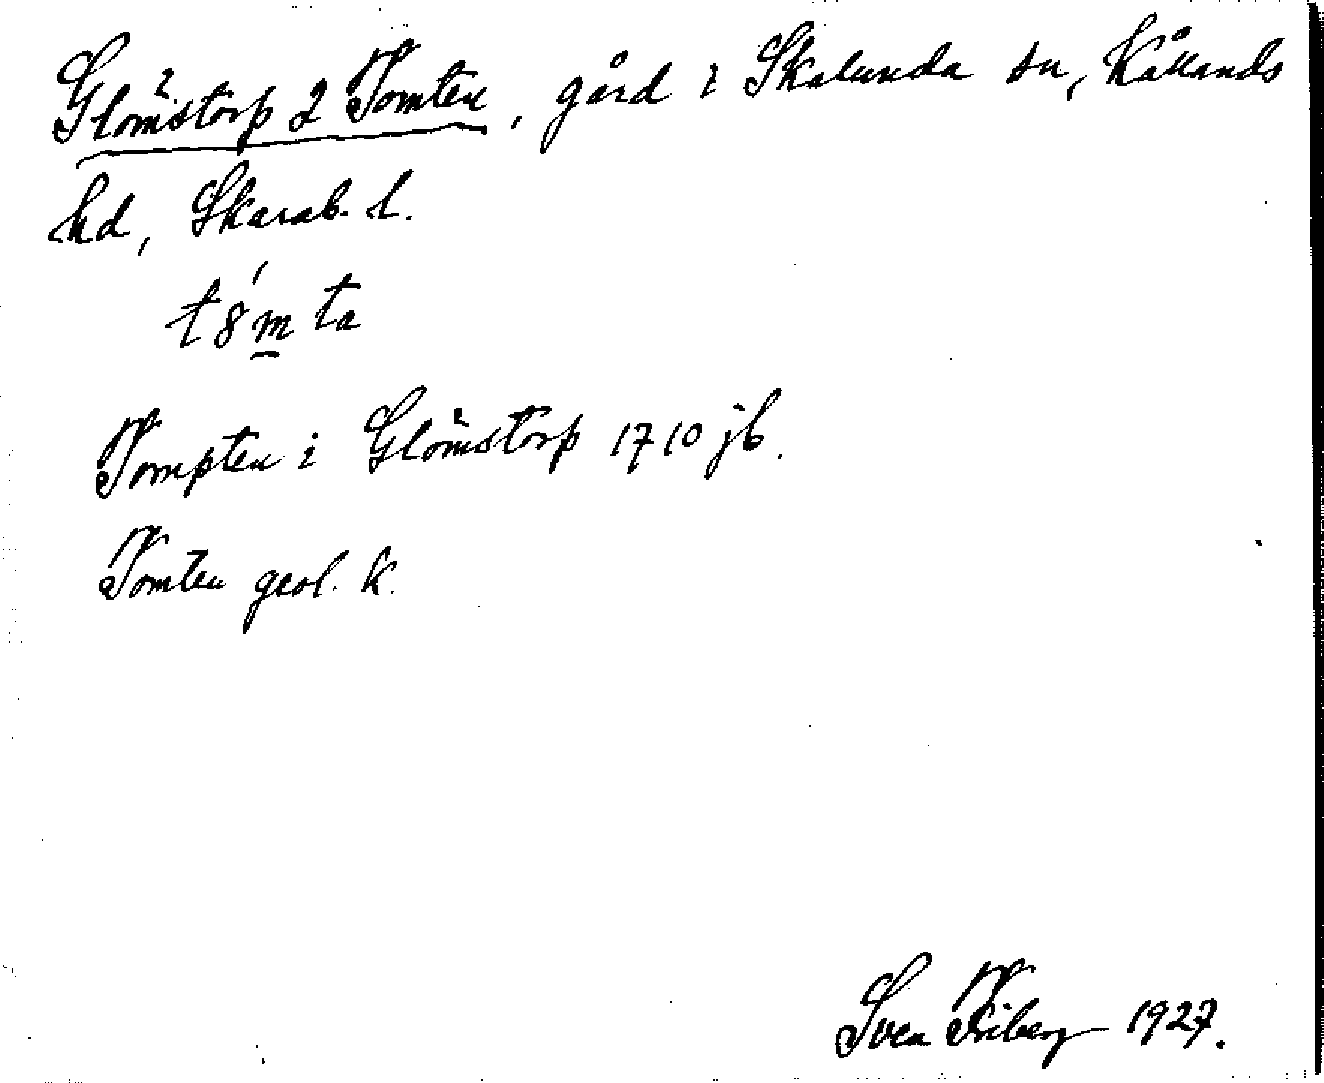 Glömstorp 2 Tomten, gård i Skalunda sn, Kållands
hd, Skarab. l.
t8́m̲ta
Tompten i Glömstorp 1710 jb.
Tomten geol. k.
Sven Friberg 1927.